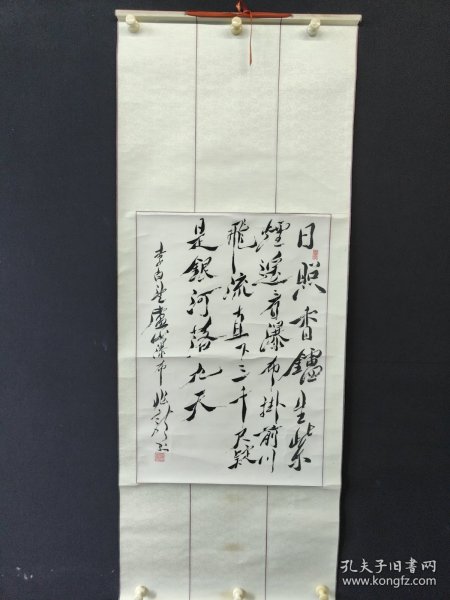 日照香鑪生紫
煙遙看瀑布掛前川
飛流直下三千尺疑
是銀河落九天
李白望廬山瀑布
孔夫子旧书网
www.kongfz.com